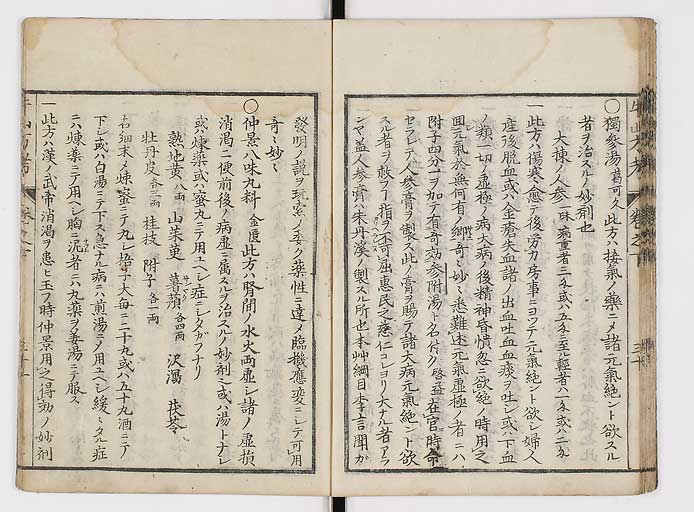 ○獨參湯 葛可久 此方ハ接氣ノ藥ニメ諸元氣絶ント欲スル
者ヲ治スルノ妙剤也
大棟ノ人参一味 病重者ニハ
一此方ハ傷寒人愈テ後労力房事ニヨツテ元氣絶ント欲シ婦人
産後脱血或ハ金瘡失血諸ノ出血吐血血痰ヲ吐シ或ハ下血
ノ類一切ノ虚極ノ病大病ノ後精神昏憒忽ニ欲絶ノ時用之
回元氣於無何有ノ郷奇ノ妙ミ悉難述元氣虚極ノ者ニハ
附子四分一ヲ加テ有奇効参附湯ト名付ク 啓益 在官時命
セラレテ人参膏ヲ製ス此ノ膏ヲ賜テ諸大病元氣絶ント欲
スル者ヲ救フ 指ヲ不可屈惠民之慈仁コレヨリ大ナル者アラ
ンヤ盖人参膏ハ朱丹溪ノ製スル所也本艸綱目李言聞ガ
發明ノ説ヲ玩索ノ委ク藥性ニ達メ臨機應変ニシテ可用
奇ミ妙ミ
○仲景八味丸料 金匱 此方ハ腎間ノ水火両虚シ諸ノ虚損
消渇ニ便前後ノ病虚ニ属スルヲ治スルノ妙剤之或ハ湯トナシ
或ハ煉藥或ハ蜜丸ニテ用ユヘシ症ニシタカフナリ
熟地黄 八両 山茱萸 薯蕷 各四両 沢瀉 茯苓
牡丹皮 各三両 桂枝 附子 各一両
右細末ノ煉蜜ニテ丸シ梧子大毎ニ二十丸或ハ五十丸酒ニテ
下シ或ハ白湯ニテ下ス急ナル病ニハ煎湯ニノ用ユヘシ緩ミタル症
ニハ煉藥ニテ用ヘシ胸ニ泥者ニハ丸藥ヲ姜湯ニテ服ス
一此方ハ漢ノ武帝消渇ヲ患ヒ玉フ時仲景用之得効ノ妙剤